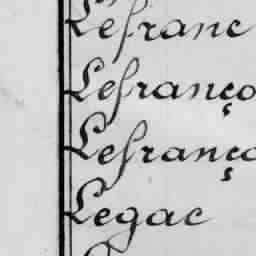 Lefranc
Lefranço
Lefranço
Legac